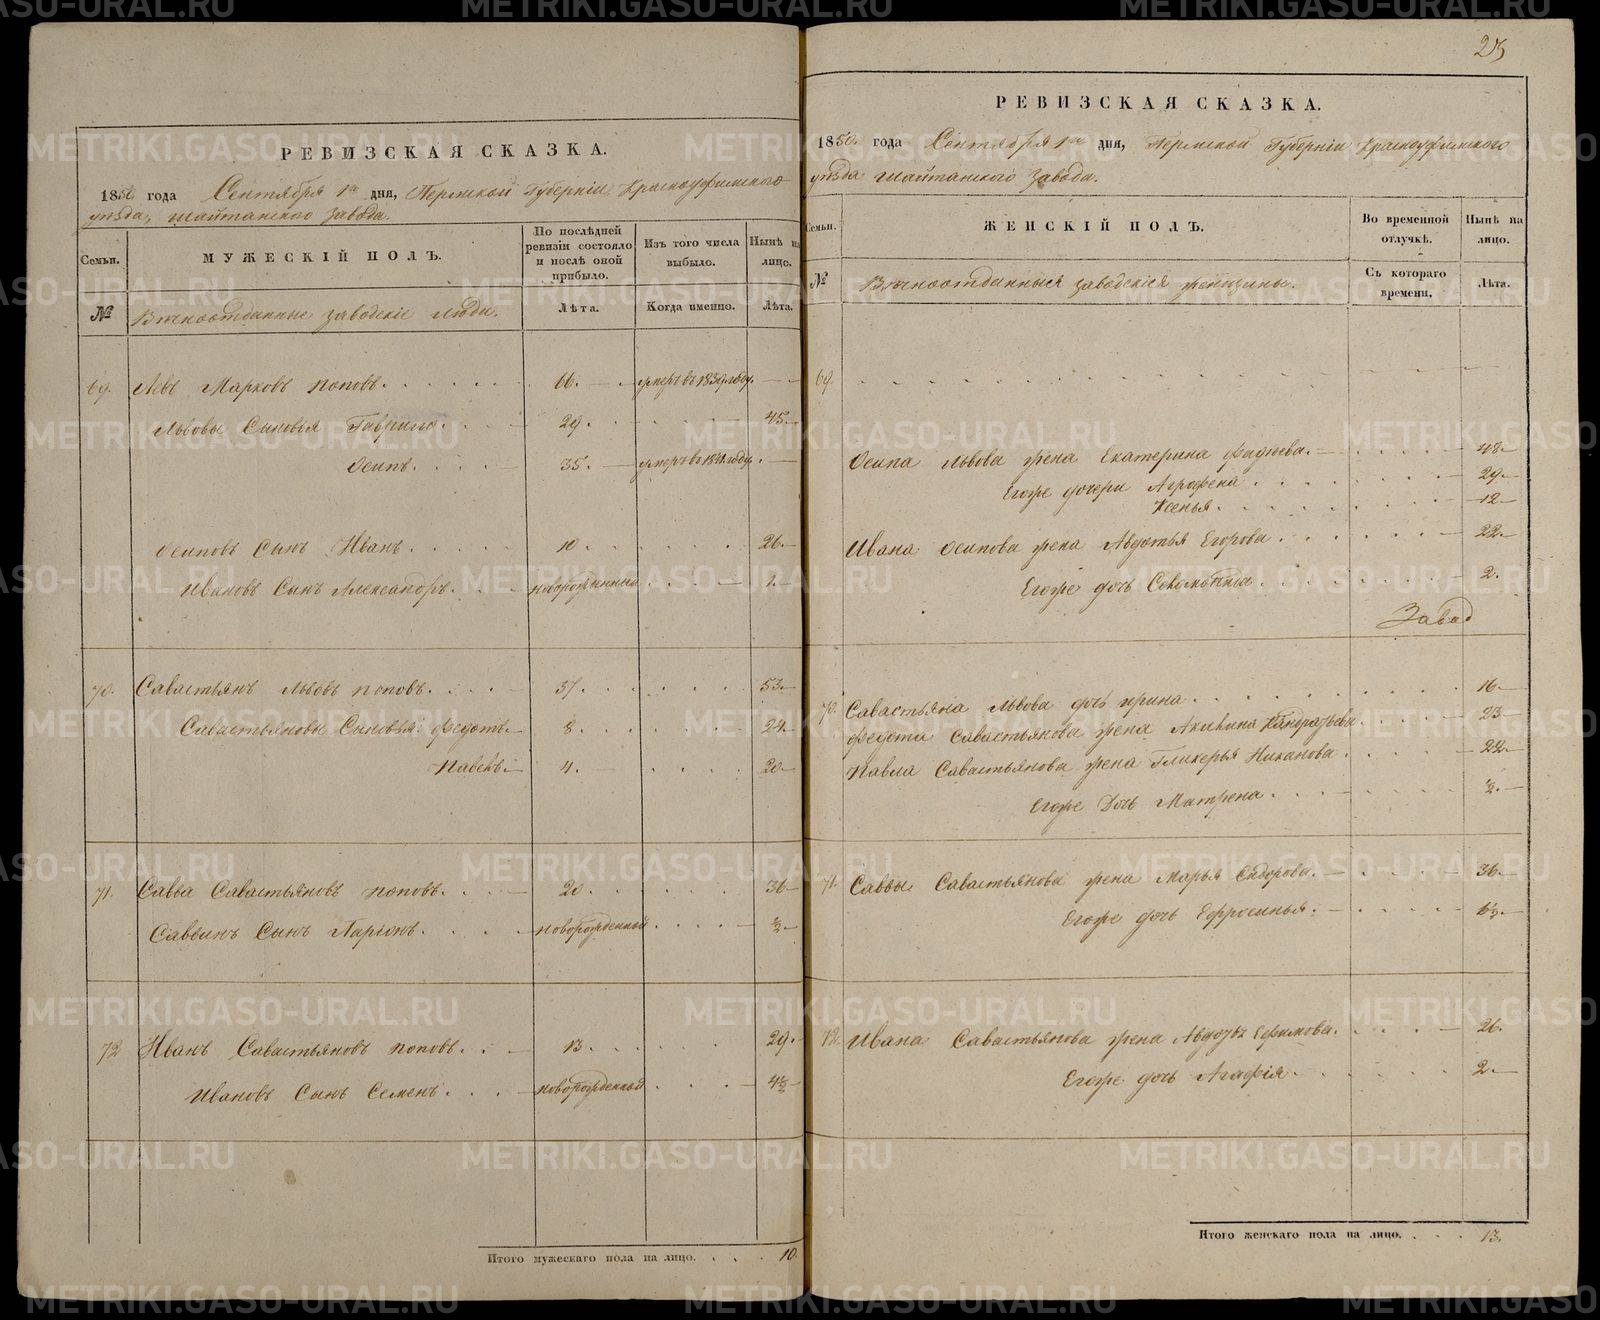 РЕВИЗСКАЯ СКАЗКА.
1850 года Сентября 1го дня, Пермской Губерніи Красноуфимского
уѣзда, Шайтанского завода.
Семьи.
МУЖЕСКІЙ ПОЛЪ.
По послѣдней ревизіи состояло и послѣ оной прибыло.
Изъ того числа выбыло.
Нынѣ на лицо.
№
Вѣчноотданные заводскіе люди.
Лѣта.
Когда именно.
Лѣта.
69. Левъ Марковъ Поповъ. 66. умеръ въ 1839 году.
Львовы Сыновья Гаврило. 29. 45.
Осипъ. 35. умеръ въ 1841 году.
Осиповъ Сынъ Иванъ. 10. 26.
Ивановъ Сынъ Александръ. новорожденный 1.
70. Савастьянъ Львовъ Поповъ. 37. 53.
Савастьяновы Сыновья: Федотъ. 8. 24.
Павелъ. 4. 20.
71. Савва Савастьяновъ Поповъ. 20. 36.
Саввинъ Сынъ Ларіонъ. новорожденный
72 Иванъ Савастьяновъ Поповъ. 13. 29.
Ивановъ Сынъ Семенъ. новорожденный
Итого мужескаго пола на лицо. 10.
23
РЕВИЗСКАЯ СКАЗКА.
1850 года Сентября 1го дня, Пермской Губерніи Красноуфимского
уѣзда Шайтанского завода.
Семьи.
ЖЕНСКІЙ ПОЛЪ.
Во временной отлучкѣ.
Нынѣ на лицо.
№
Вѣчноотданныя заводскія женщины.
Съ котораго времени.
Лѣта.
69.
Осипа Львова жена Екатерина Фадѣева. 48.
Егоже дочери Аграфена 29.
Ксенья. 12
Ивана Осипова жена Авдотья Егорова 22.
Егоже дочь 2.
Завод
70. Савастьяна Львова дочь Ирина 16.
Федота Савастьянова жена Акилина Кандратьева 23
Павла Савастьянова жена Гликерья Никанова 22
Егоже Дочь Матрена.
71. Саввы Савастьянова жена Марья Сидорова. 36.
Егоже дочь Ефросинья.
72. Ивана Савастьянова жена Ефимова. 26.
Егоже дочь Агафія 2.
Итого женскаго пола на лицо. 13.
METRIKI.GASO-URAL.RU